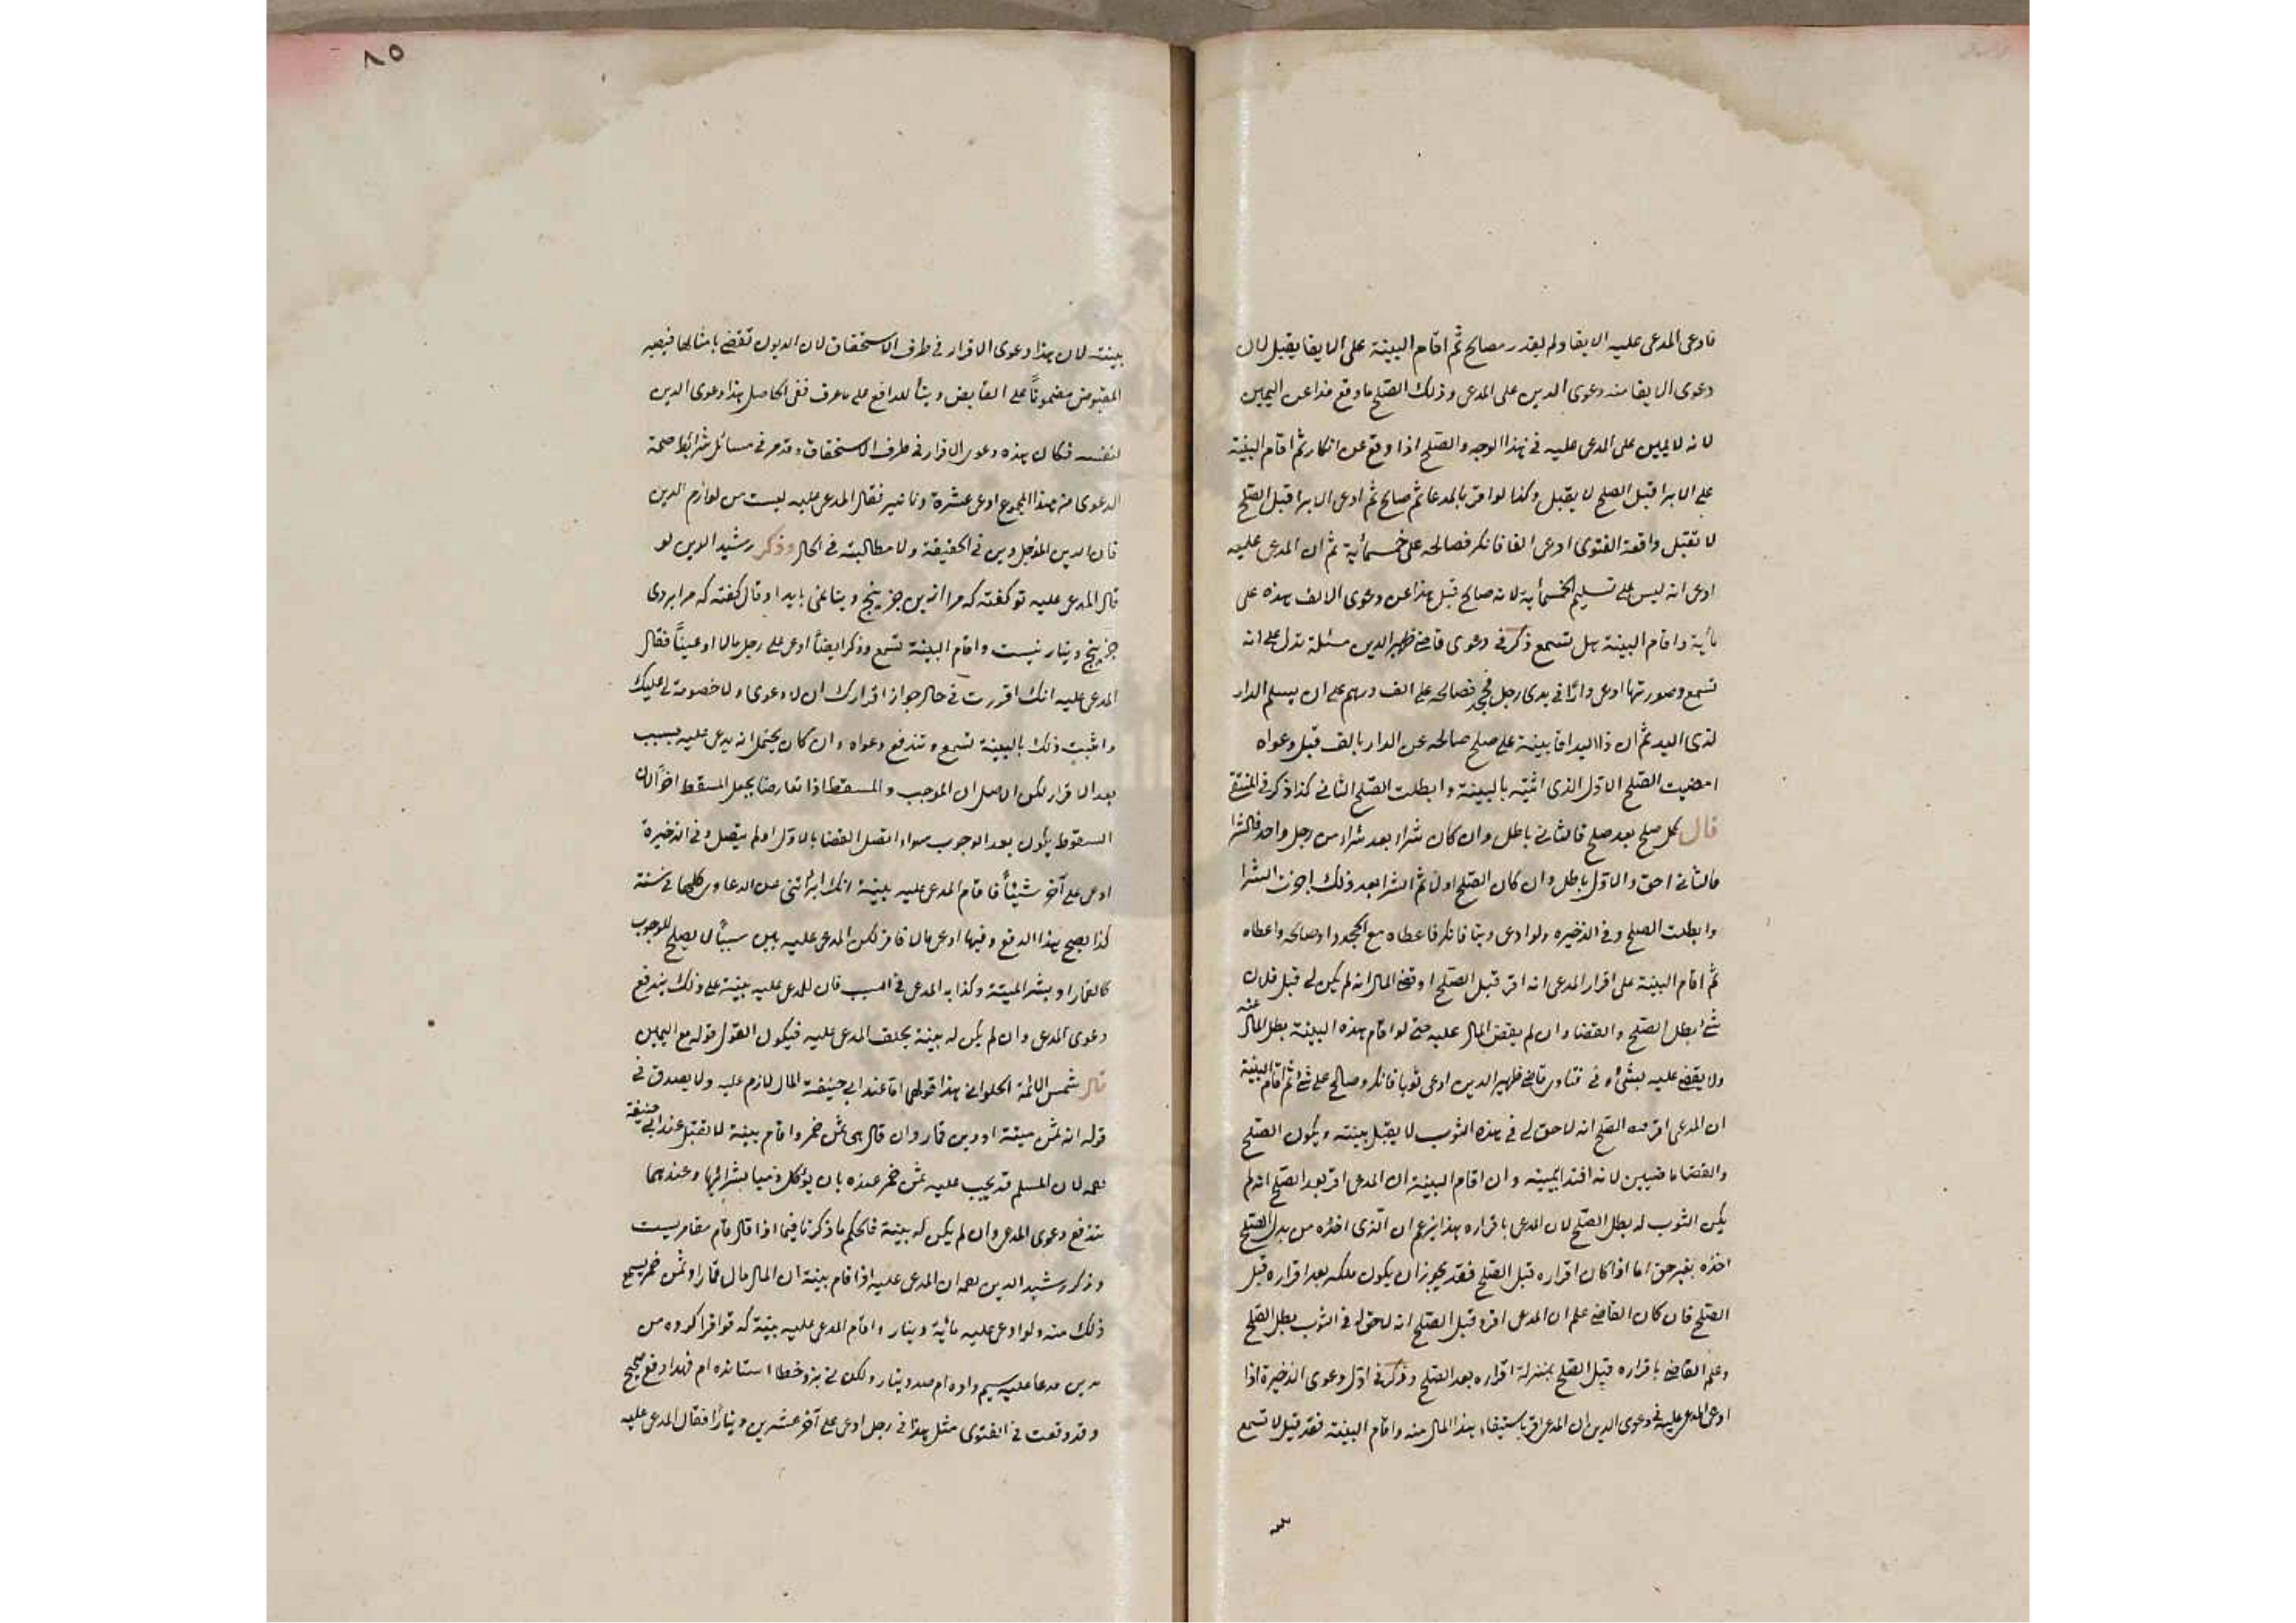 فادعى المدعى عليه الايفا ولم يقدر مصالح ثم اقام البينة على الايفا يقبل لان
دعوى الايفا منه دعوى الدين على المدعى وذلك الصلح ما وقع فدا عن اليمين
لانه لا يمين على المدعى عليه فى هذا الوجه والصلح اذا وقع عن انكار ثم اقام البينة
على الابرا قبل الصلح لا يقبل وكذا لو اقر بالمدعا ثم صالح ثم ادعى الابرا قبل الصلح
لا تقبل واقعة الفتوى ادعى الفا فانكر فصالحه على خمسمأية ثم ان المدعى عليه
ادعى انه ليس على تسليم الخمسمأية لانه صالح قبل هذا عن دعوى الالف هذه على
مأية واقام البينة هل تسمع ذكر فى دعوى قاضى ظهير الدين مسئلة تدل على انه
تسمع وصورتها ادعى دارًا فى يدى رجل فجحد فصالحه على الف درهم على ان يسلم الدار
لذى اليد ثم ان ذا اليد اقا بينة على صلح صالحه عن الدار بالف قبل دعواه
امضيت الصلح الاول الذى اثبته بالبينة وابطلت الصلح الثانى كذا ذكر فى المنتقى
قال كل صلح بعد صلح فالثانى باطل وان كان شراء بعد شراء من رجل واحد فالشرا
فالثانى احق والاول باطل وان كان الصلح اولا ثم الشرا بعد ذلك اجزت الشرا
وابطلت الصلح وفى الذخيره ولو ادعى دينا فانكر فاعطاه مع الجحود او صالحه واعطاه
ثم اقام البينة على اقرار المدعى انه اقر قبل الصلح او قضى المال انه لم يكن لى قبل فلان
شئ بطل الصلح والقضا وان لم يقض المال عليه حتى لو اقام هذه البينة بطل المال عنه
ولا يقضى عليه بشئ وفى فتاوى قاضى ظهير الدين ادعى ثوبا فانكر وصالح على شئ ثم اقام البينة
ان المدعى اقر قبل الصلح انه لا حق لى فى هذه الثوب لا يقبل بينته ويكون الصلح
والقضا ماضيين لانه افتدا يمينه وان اقام البينة ان المدعى اقر بعد الصلح انه لم
يكن الثوب له بطل الصلح لان المدعى باقراره هذا يزعم ان الذى اخذه من بدل الصلح
اخذه بغير حق اما اذا كان اقراره قبل الصلح فقد يجوز ان يكون ملكه بعد اقراره قبل
الصلح فان كان القاضى علم ان المدعى اقر قبل الصلح انه لا حق له فى الثوب بطل الصلح
وعلم القاضى باقراره قبل الصلح بمنزلة اقراره بعد الصلح وذكر فى اول دعوى الذخيرة اذا
ادعى المدعى عليه فى دعوى الدين ان المدعى اقر باستيفاء هذا المال منه واقام البينة فقد قيل لا تسمع
٨٥
بينته لان هذا دعوى الاقرار فى طرف الاستحقاق لان الديون تقضى بامثالها فيصير
المقبوض مضمونًا على القابض دينًا للدافع على ما عرف ففى الحاصل هذا دعوى الدين
لنفسه فكان هذه دعوى الاقرار فى طرف الاستحقاق وقد مر فى مسائل شرائط صحة
الدعوى من هذا المجموع ادعى عشرة دنانير فقال المدعى عليه ليست من لوازم الدين
فان الدين المؤجل دين فى الحقيقة ولا مطالبة فى الحال وذكر رشيد الدين لو
قال المدعى عليه تو كفته كه مرا ازين جز پنج دينا نمى بايد او قال كفته كه مرا بروى
جز پنج دينار نيست واقام البينة تسمع وذكر ايضًا ادعى على رجل مالا او عينًا فقال
المدعى عليه انك اقررت فى حال جواز اقرارك ان لا دعوى ولا خصومة لى عليك
واثبت ذلك بالبينة تسمع وتندفع دعواه وان كان يحتمل انه يدعى عليه بسبب
بعد الاقرار لكن الاصل ان الموجب والمسقط اذا تعارضا يجعل المسقط اخرًا لان
السقوط يكون بعد الوجوب سواء اتصل القضا بالاول او لم يتصل وفى الذخيرة
ادعى على آخر شيئًا فاقام المدعى عليه بينة انك ابرأتنى عن الدعاوى كلها فى سنة
كذا يصح هذا الدفع وفيها ادعى مالا فاقر لكن المدعى عليه بين سببًا لا يصلح للوجوب
كالقمار او بشر الميتة وكذا به المدعى فى السبب فان للمدعى عليه بينة على ذلك يندفع
دعوى المدعى وان لم يكن له بينة يحلف المدعى عليه فيكون القول قوله مع اليمين
قال شمس الائمة الحلوانى هذا قولهما اما عند ابى حنيفة المال لازم عليه ولا يصدق فى
قوله انه ثمن ميتة او دين قمار وان قال هى ثمن خمر واقام بينة لا تقبل عند ابى حنيفة
رحمه لان المسلم قد يجب عليه ثمن خمر عنده بان يؤكل ذميا بشرائها وعندهما
تندفع دعوى المدعى وان لم يكن له بينة فالحكم ما ذكرنا فيما اذا قال قام مقامريست
وذكر رشيد الدين رحمه ان المدعى عليه اذا قام بينة ان المال مال قمار او ثمن خمر يسمع
ذلك منه ولو ادعى عليه مأية دينار واقام المدعى عليه بينة كه تو اقرا كرده من
بدين مدعا عليه سيم داده ام صد دينار ولكن نى بزو خطا استانده ام فهذا دفع صحيح
وقد وقعت فى الفتوى مثل هذا فى رجل ادعى على آخر عشرين دينارًا فقال المدعى عليه